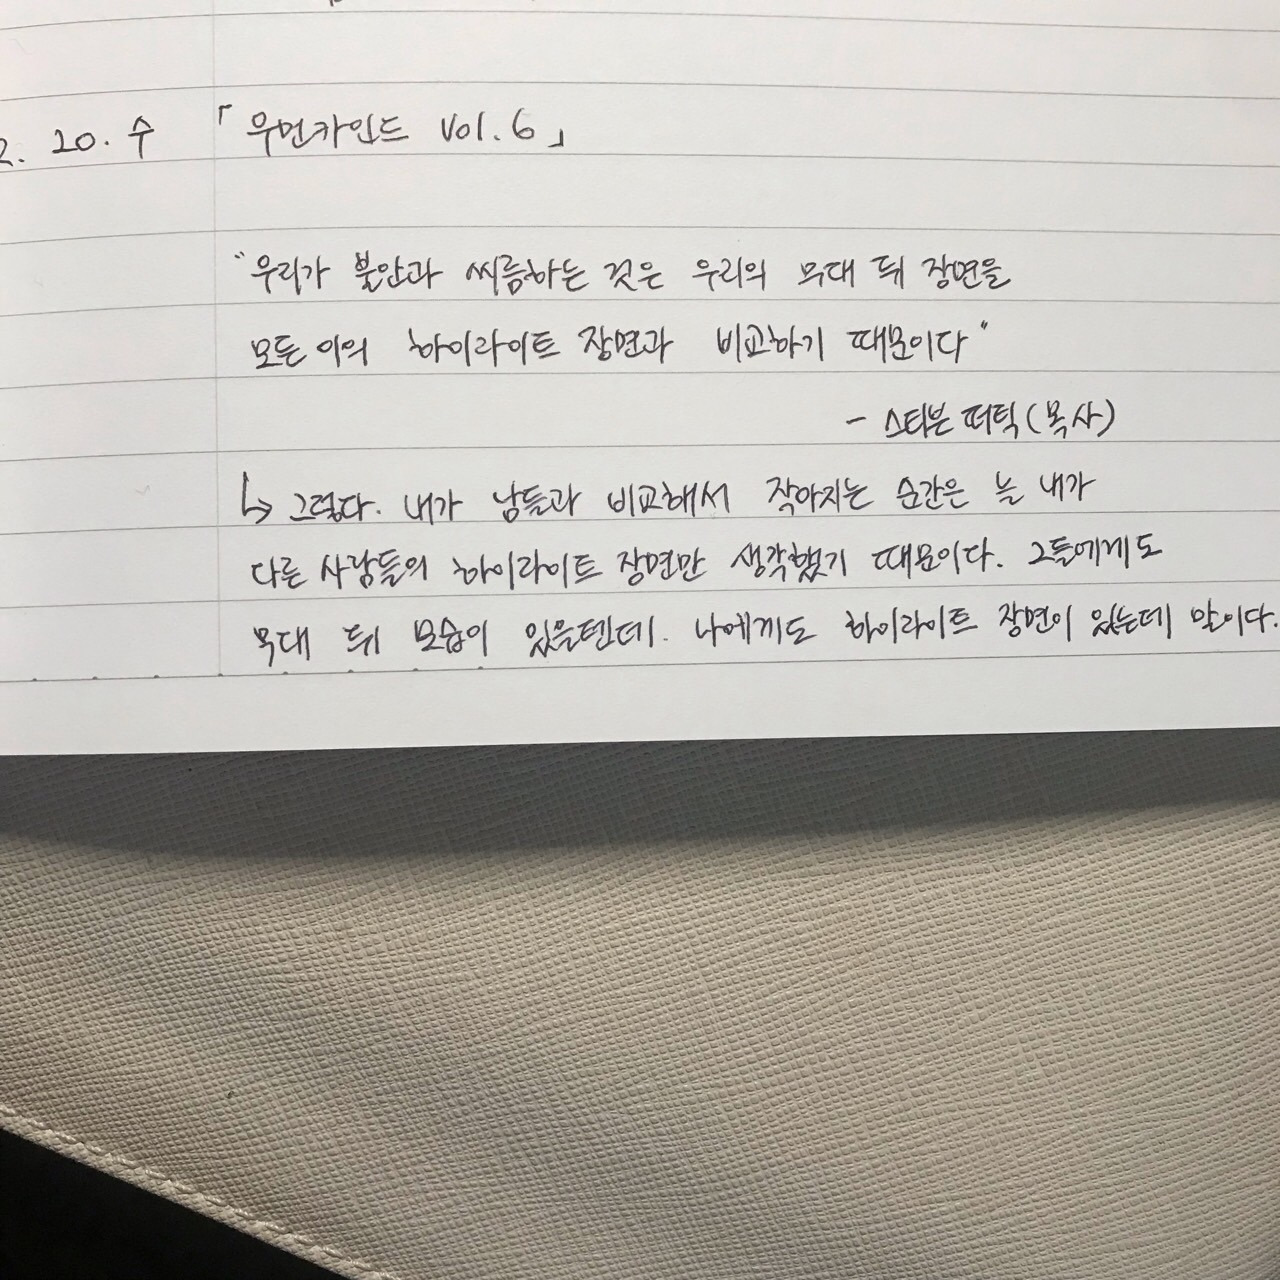 2. 20. 수 「우먼카인드 Vol. 6」
"우리가 불안과 씨름하는 것은 우리의 무대 뒤 장면을
모든 이의 하이라이트 장면과 비교하기 때문이다"
- 스티븐 퍼틱 (목사)
↳ 그렇다. 내가 남들과 비교해서 작아지는 순간은 늘 내가
다른 사람들의 하이라이트 장면만 생각했기 때문이다. 그들에게도
무대 뒤 모습이 있을텐데. 나에게도 하이라이트 장면이 있는데 말이다.